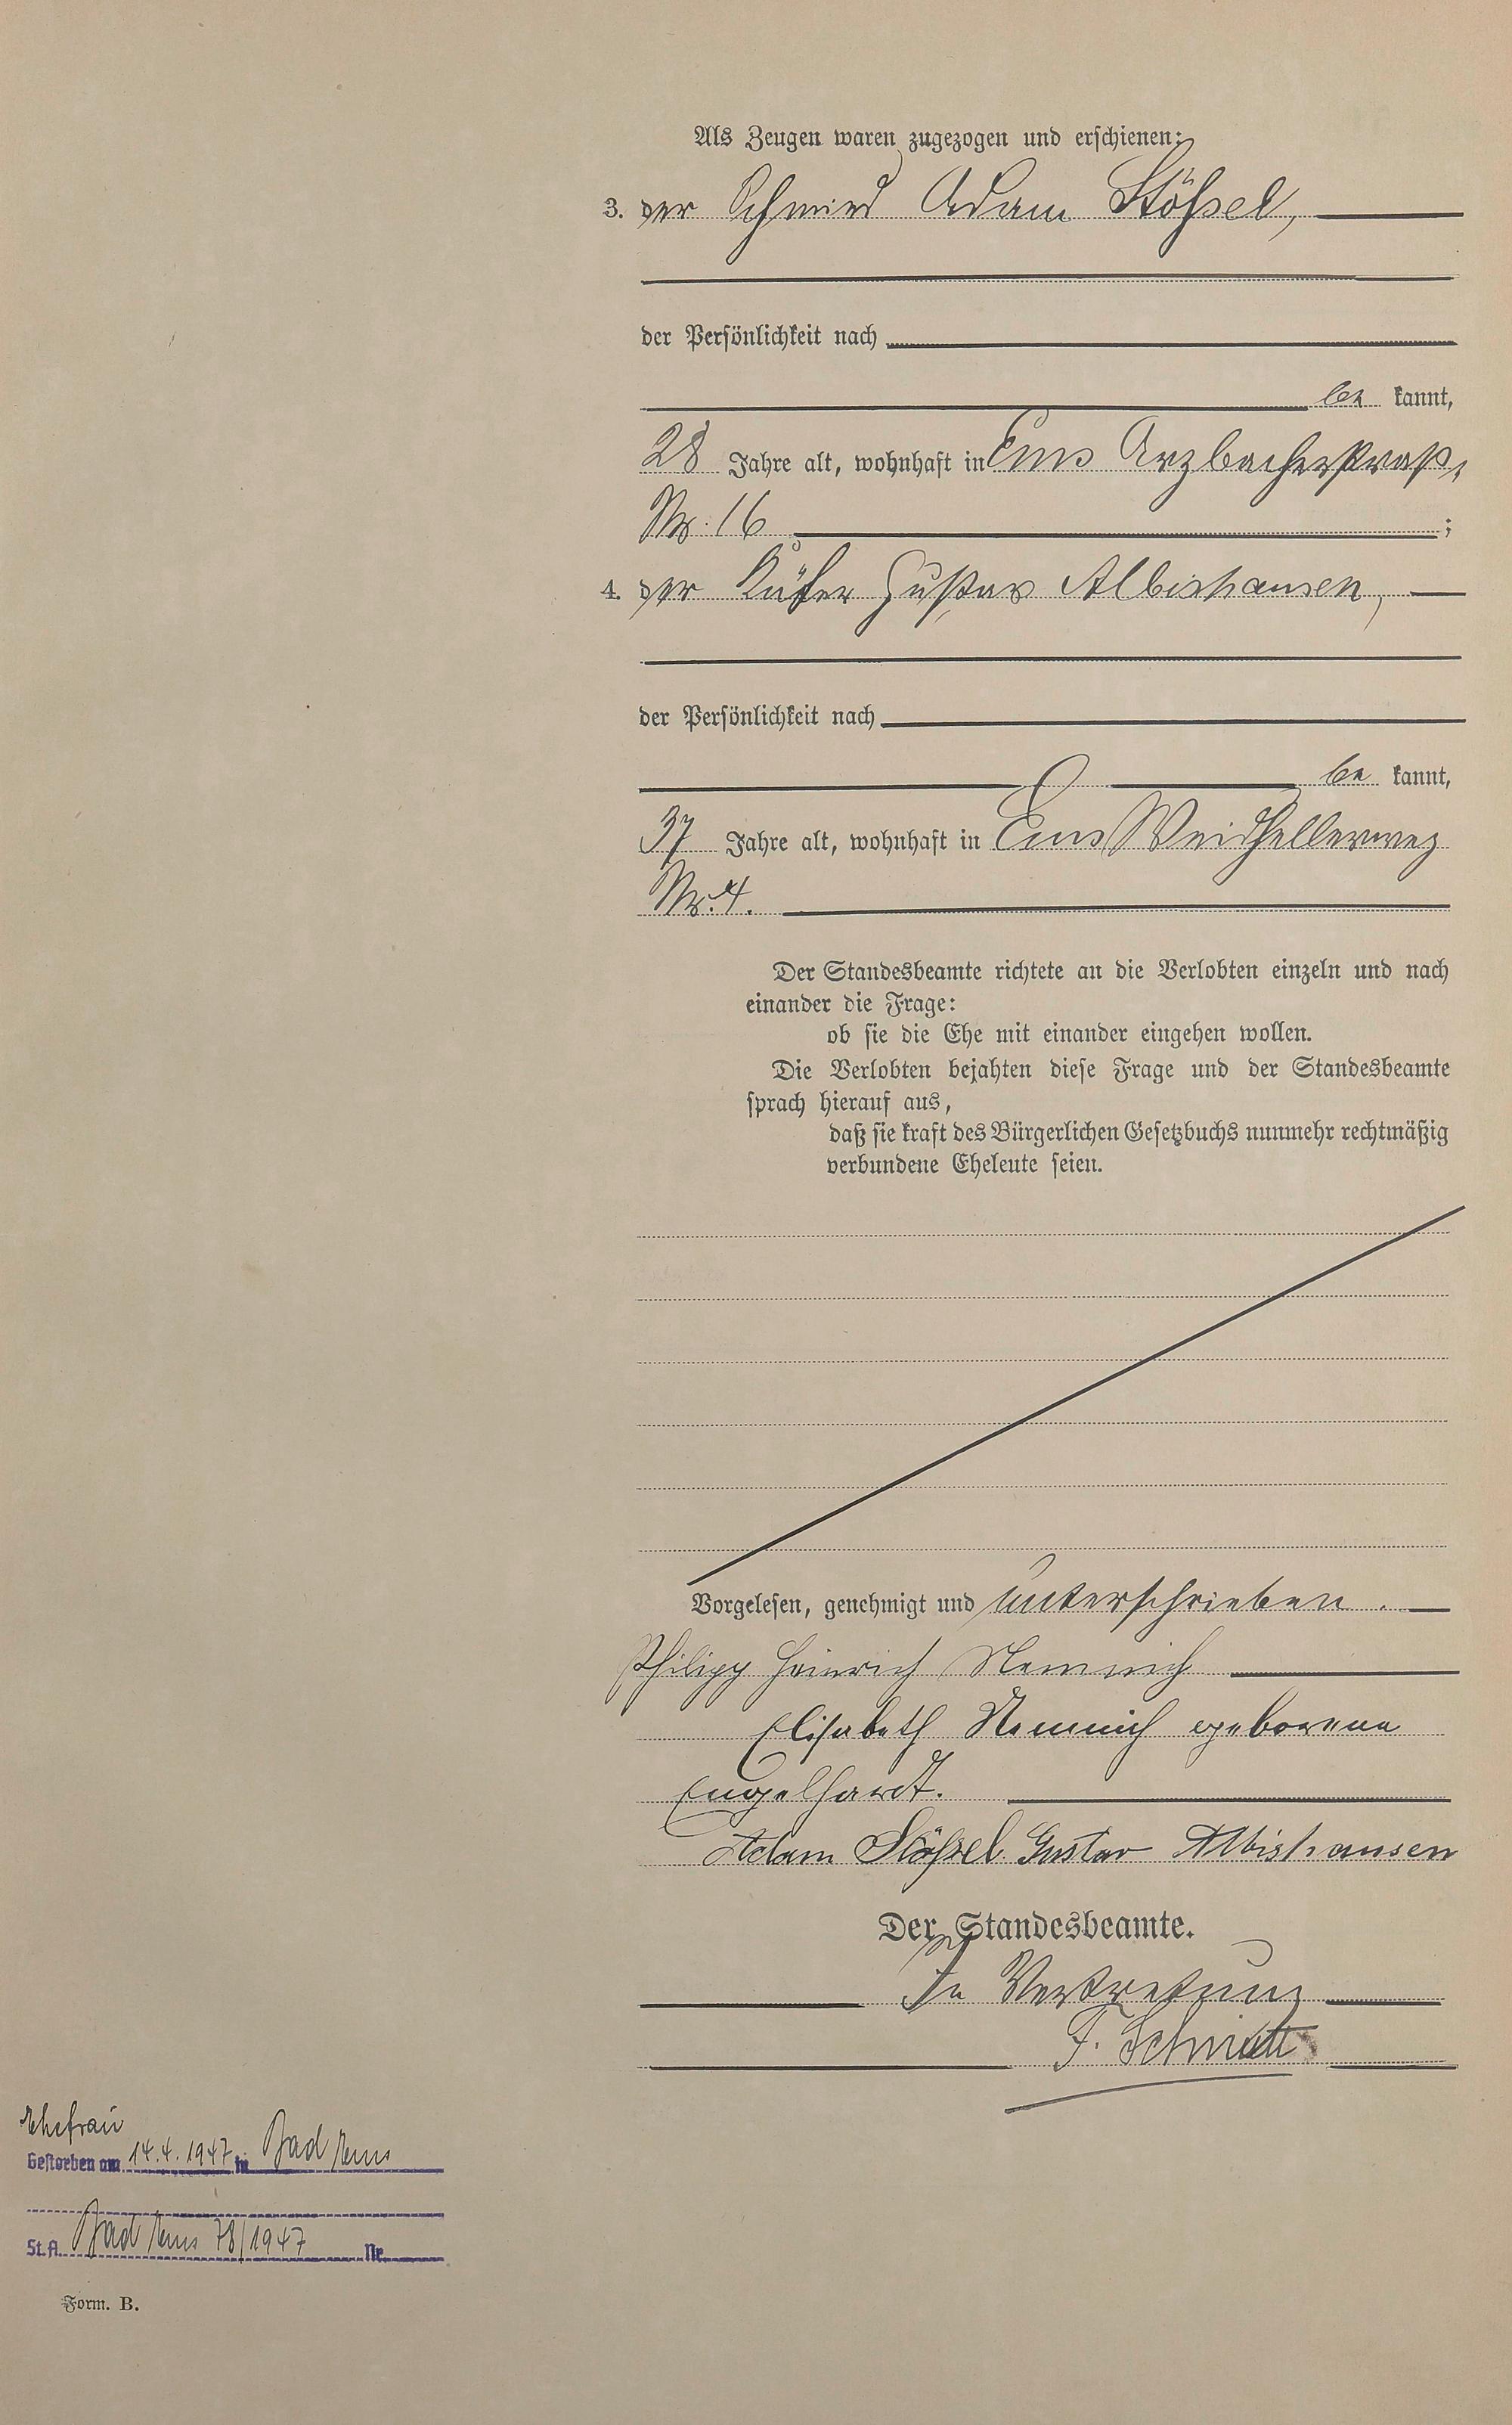 Als Zeugen waren zugezogen und erschienen:
3. der Schmied Adam Stößel,
der Persönlichkeit nach
be kannt,
28 Jahre alt, wohnhaft in Ems Arzbacherstraße,
Nr. 16 ;
4. der Küfer Gustav Albishausen,
der Persönlichkeit nach
be kannt,
37 Jahre alt, wohnhaft in Ems Weidhellerweg
Nr. 4.
Der Standesbeamte richtete an die Verlobten einzeln und nach
einander die Frage:
ob sie die Ehe mit einander eingehen wollen.
Die Verlobten bejahten diese Frage und der Standesbeamte
sprach hierauf aus,
daß sie kraft des Bürgerlichen Gesetzbuchs nunmehr rechtmäßig
verbundene Eheleute seien.
Vorgelesen, genehmigt und unterschrieben.
Philipp Heinrich Nemnich
Elisabeth Nemnich geborene
Engelhardt.
Adam Stößel. Gustav Albishausen
Der Standesbeamte.
In Vertretung
F. Schmitt
Ehefrau
Gestorben am 14.4.1947 in Bad Ems
St.A. Bad Ems 78/1947 Nr.
Form. B.